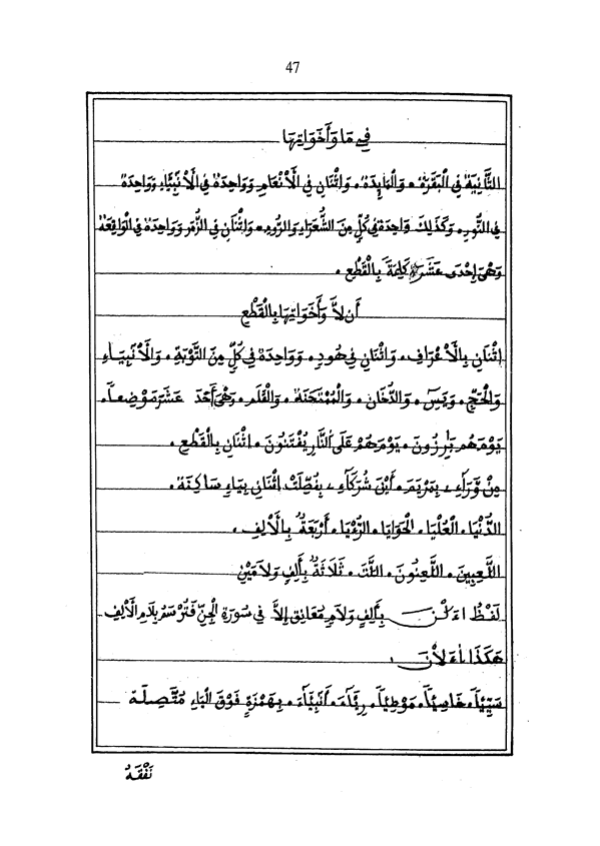 47
فِي مَا وَأَخَوَاتِهَا
الثَّانِيَةُ فِي الْبَقَرَةِ. وَالْمَايِدَةِ. وَاثْنَانِ فِي الْأَنْعَامِ وَوَاحِدَةٌ فِي الْأَنْبِيَّاءِ وَوَاحِدَةٌ
فِي النُّورِ. وَكَذَلِكَ وَاحِدَةٌ فِي كُلٍّ مِنَ الشُّعَرَاءِ وَالرُّومِ. وَاثْنَانِ فِي الزُّمَرِ وَوَاحِدَةٌ فِي الْوَاقِعَةِ
وَهِيَ إِحْدَى عَشَرَةَ كَلِمَةً بِالْقَطْعِ.
أَن لاَّ وَأَخَوَاتِهَا بِالْقَطْعِ
اثْنَانِ بِالْأَعْرَافِ. وَاثْنَانِ فِي هُودٍ. وَوَاحِدَةٌ فِي كُلٍّ مِنَ التَّوْبَةِ. وَالْأَنْبِيَاءِ
وَالْحَجِّ. وَيَسٓ. وَالدُّخَانِ. وَالْمُمْتَحَنَةِ. وَالْقَلَمِ. وَهِيَ أَحَدَ عَشَرَ مَوْضِعاً.
يَوْمَ هُم بَٰرِزُونَ. يَوْمَ هُمْ عَلَى النَّارِ يُفْتَنُونَ. اثْنَانِ بِالْقَطْعِ.
مِنْ وَّرَآءِ، بِمَرْيَمَ. أَيْنَ شُرَكَآءِ، بِفُصِّلَتْ اثْنَانِ بِيَاءٍ سَاكِنَةٍ.
الدُّنْيَا. الْعُلْيَا. الْحَوَايَا. الرُّءْيَا. أَرْبَعَةٌ بِالْأَلِفِ.
اللَّٰعِبِينَ. اللَّٰعِنُونَ. اللَّتَ. ثَلَاثَةٌ بِأَلِفٍ وَلَامَيْنِ
لَفْظُ اءَلْـَٰنَ بِأَلِفٍ وَلَامٍ مُعَانِقٍ إِلاَّ فِي سُورَةِ الْجِنِّ فَتُرْسَمُ بِلَامِ الْأَلِفِ
هَكَذَا اءَلْأَنَ.
سَيِّئاً. خَاسِئاً. مَوْطِئاً. رِيَّآءَ. أَنْبِيَّآءَ. بِهَمْزَةٍ فَوْقَ الْيَاءِ مُتَّصِلَة
نَفْقَهُ